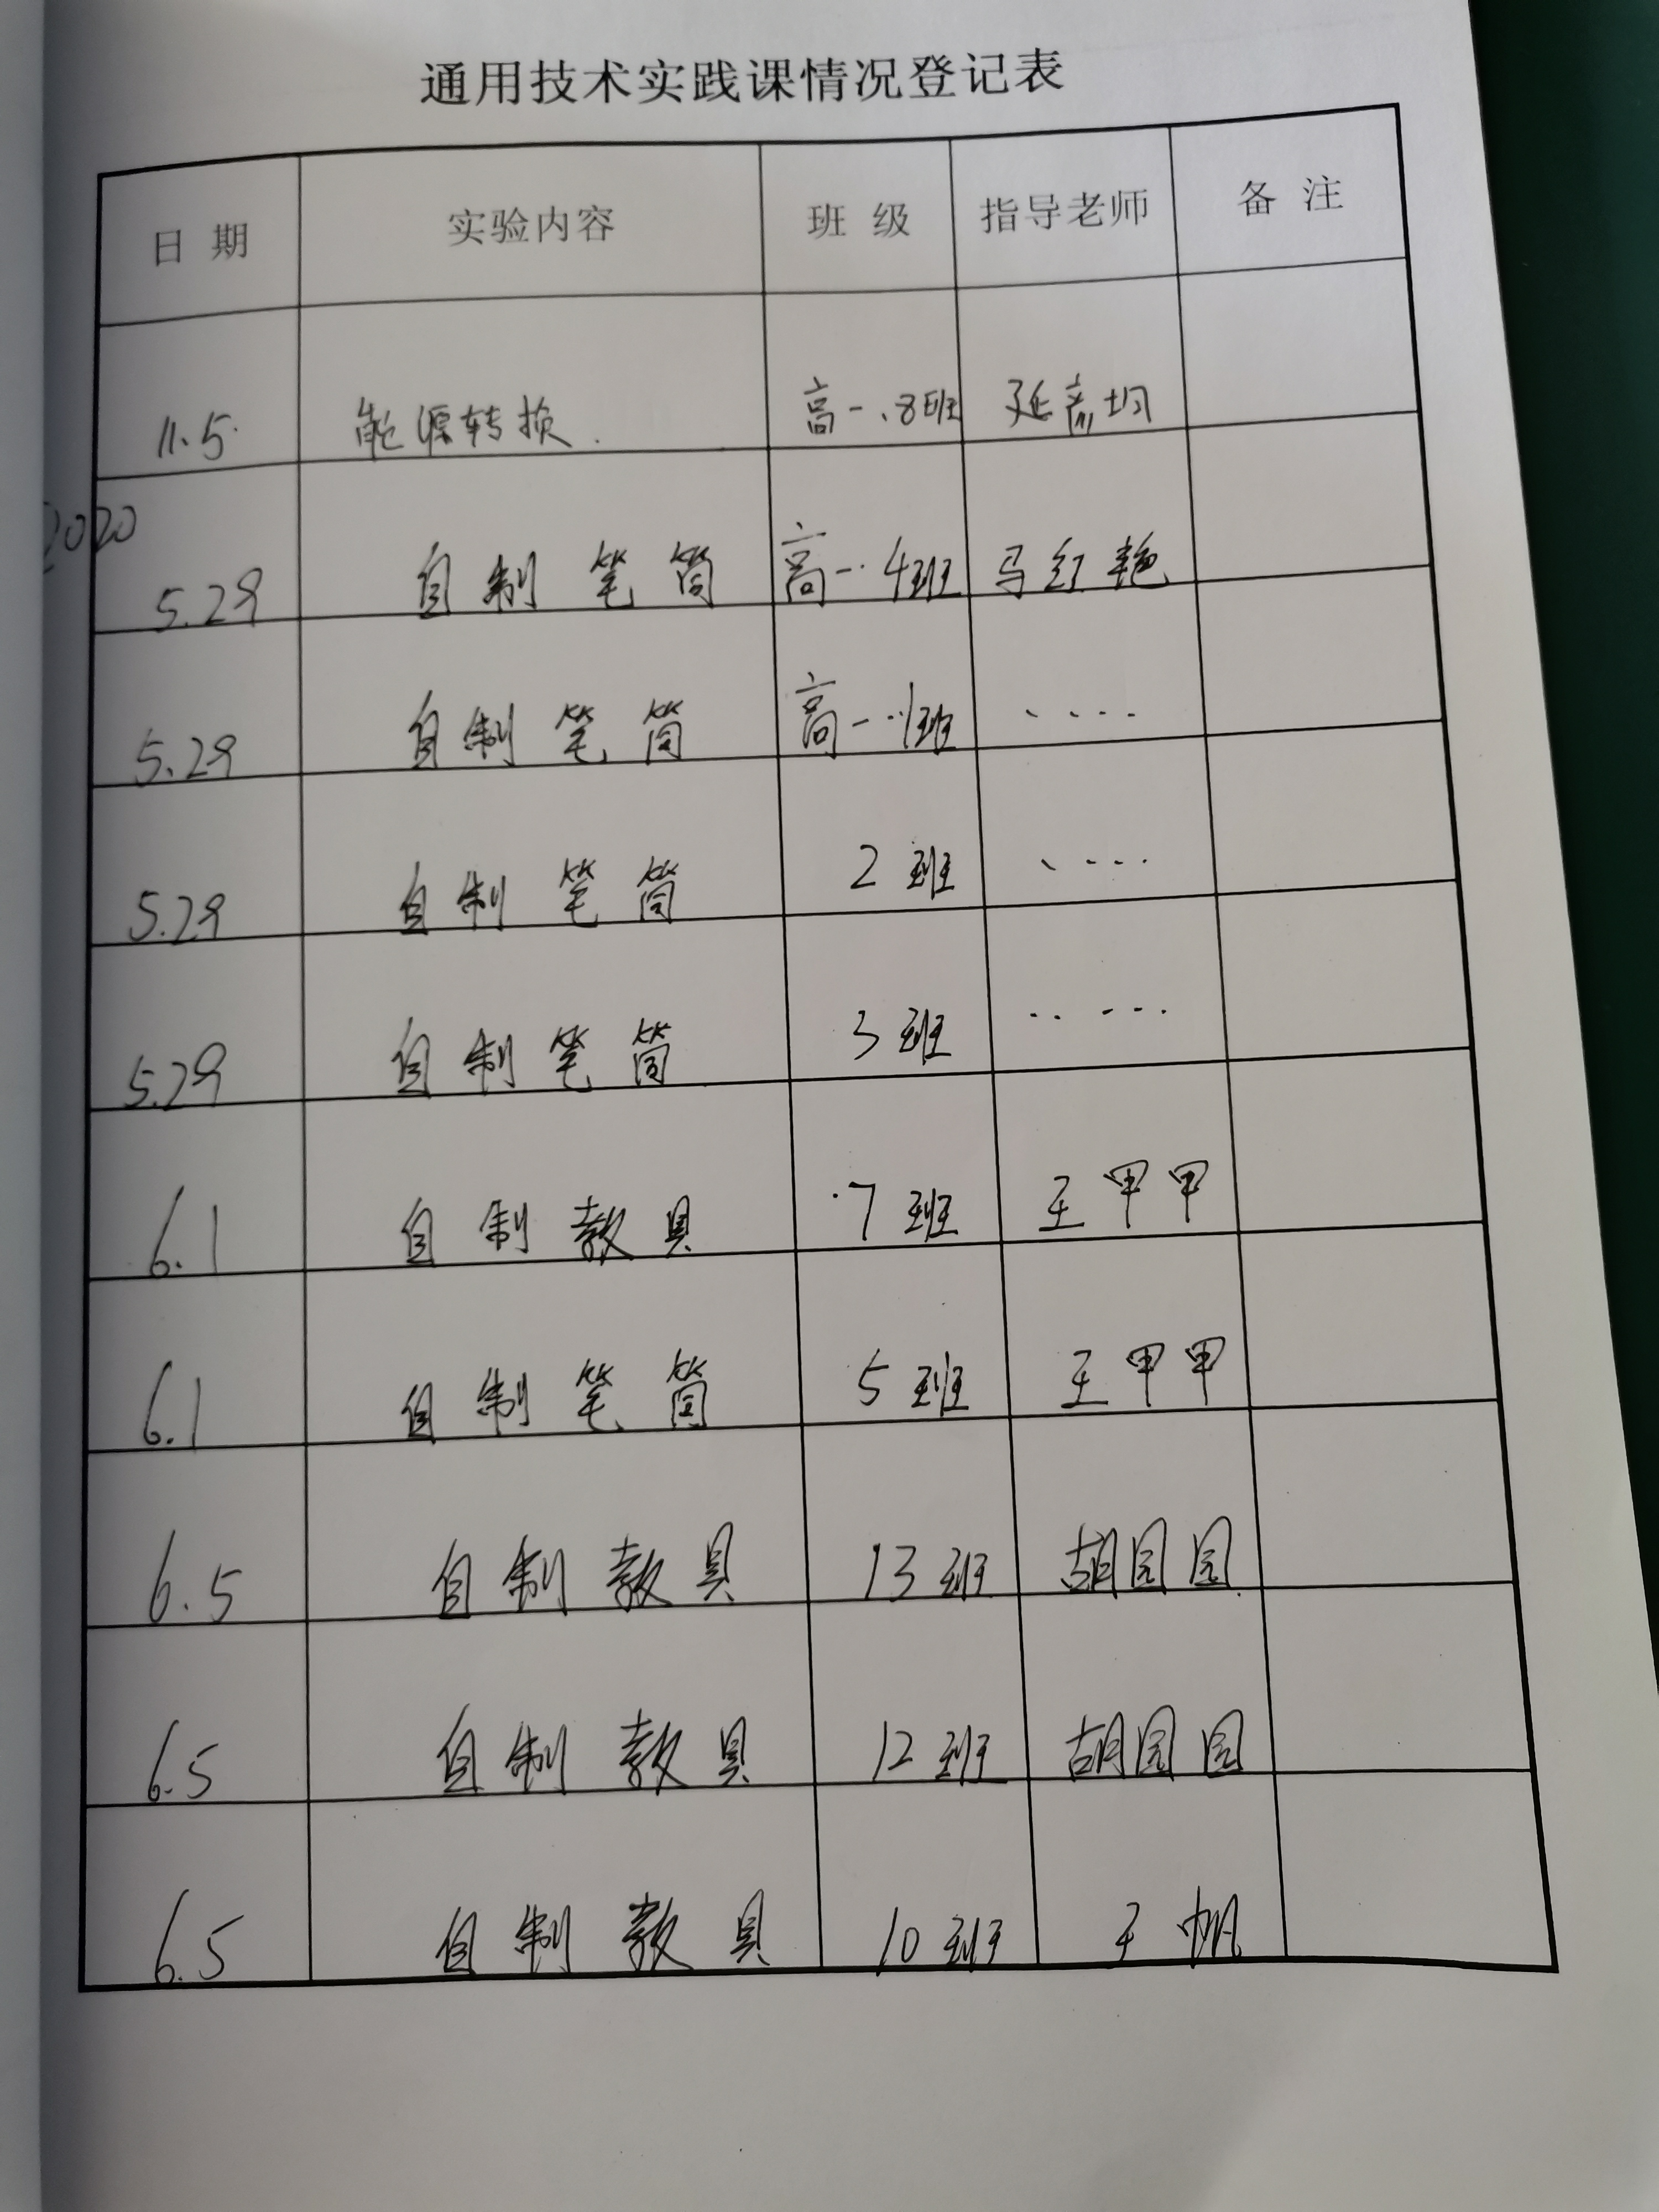 通用技术实践课情况登记表
日 期 实验内容 班 级 指导老师 备 注
11.5 能源转换. 高一.8班
2020
5.29 自制笔筒 高一.4班 马红艳
5.29 自制笔筒 高一.1班 ·····
5.29 自制笔筒 2班 ·····
5.29 自制笔筒 3班 ·····
6.1 自制教具 7班 王甲甲
6.1 自制笔筒 5班 王甲甲
6.5 自制教具 13班 胡园园
6.5 自制教具 12班 胡园园
6.5 自制教具 10班 王帆